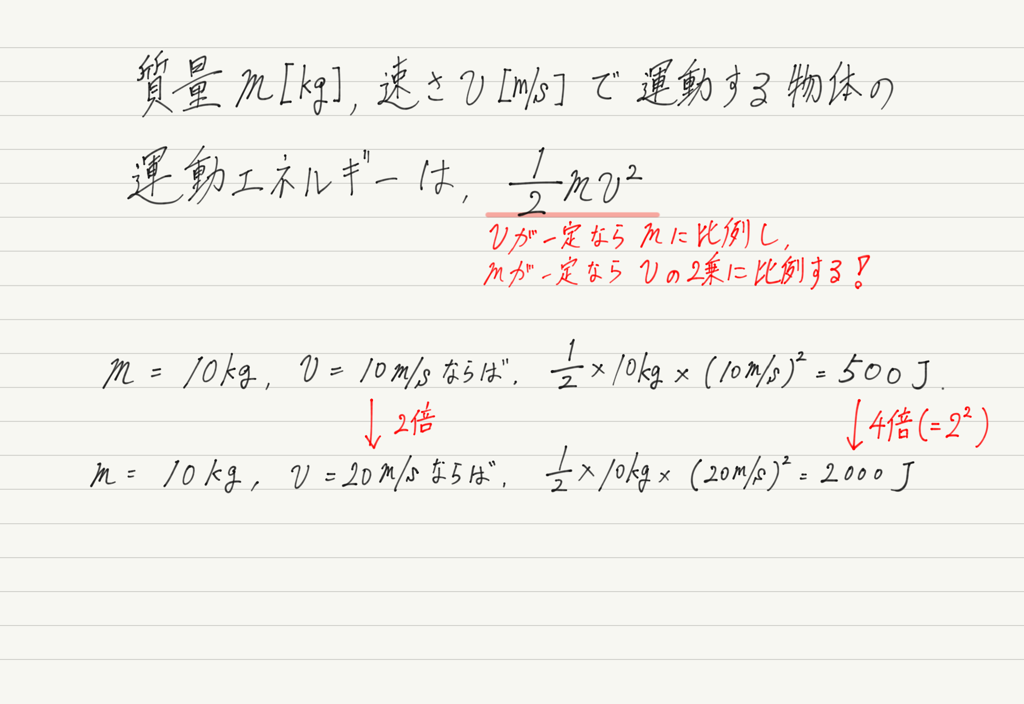 質量 m [kg], 速さ v [m/s] で 運動する 物体の
運動エネルギーは, 1/2 mv²
vが一定なら mに比例し,
mが一定なら vの2乗に比例する!
m = 10kg, v = 10m/s ならば, 1/2 × 10kg × (10m/s)² = 500 J.
↓ 2倍 ↓ 4倍(=2²)
m = 10kg, v = 20m/s ならば, 1/2 × 10kg × (20m/s)² = 2000 J